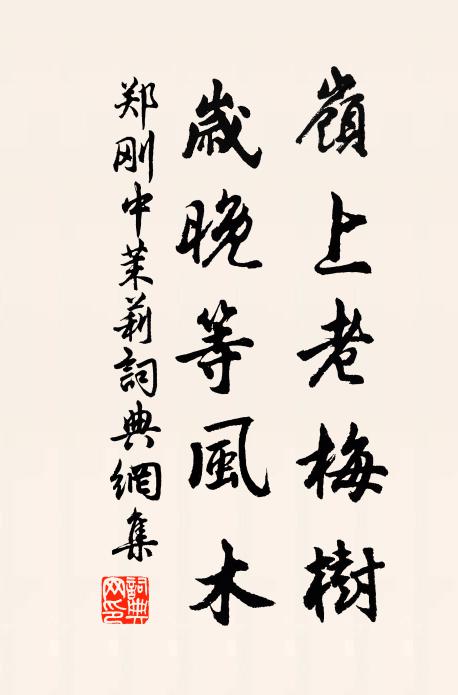 嶺上老梅樹
歲晚等風木
郑刚中茉莉詞典網集
詞典网印